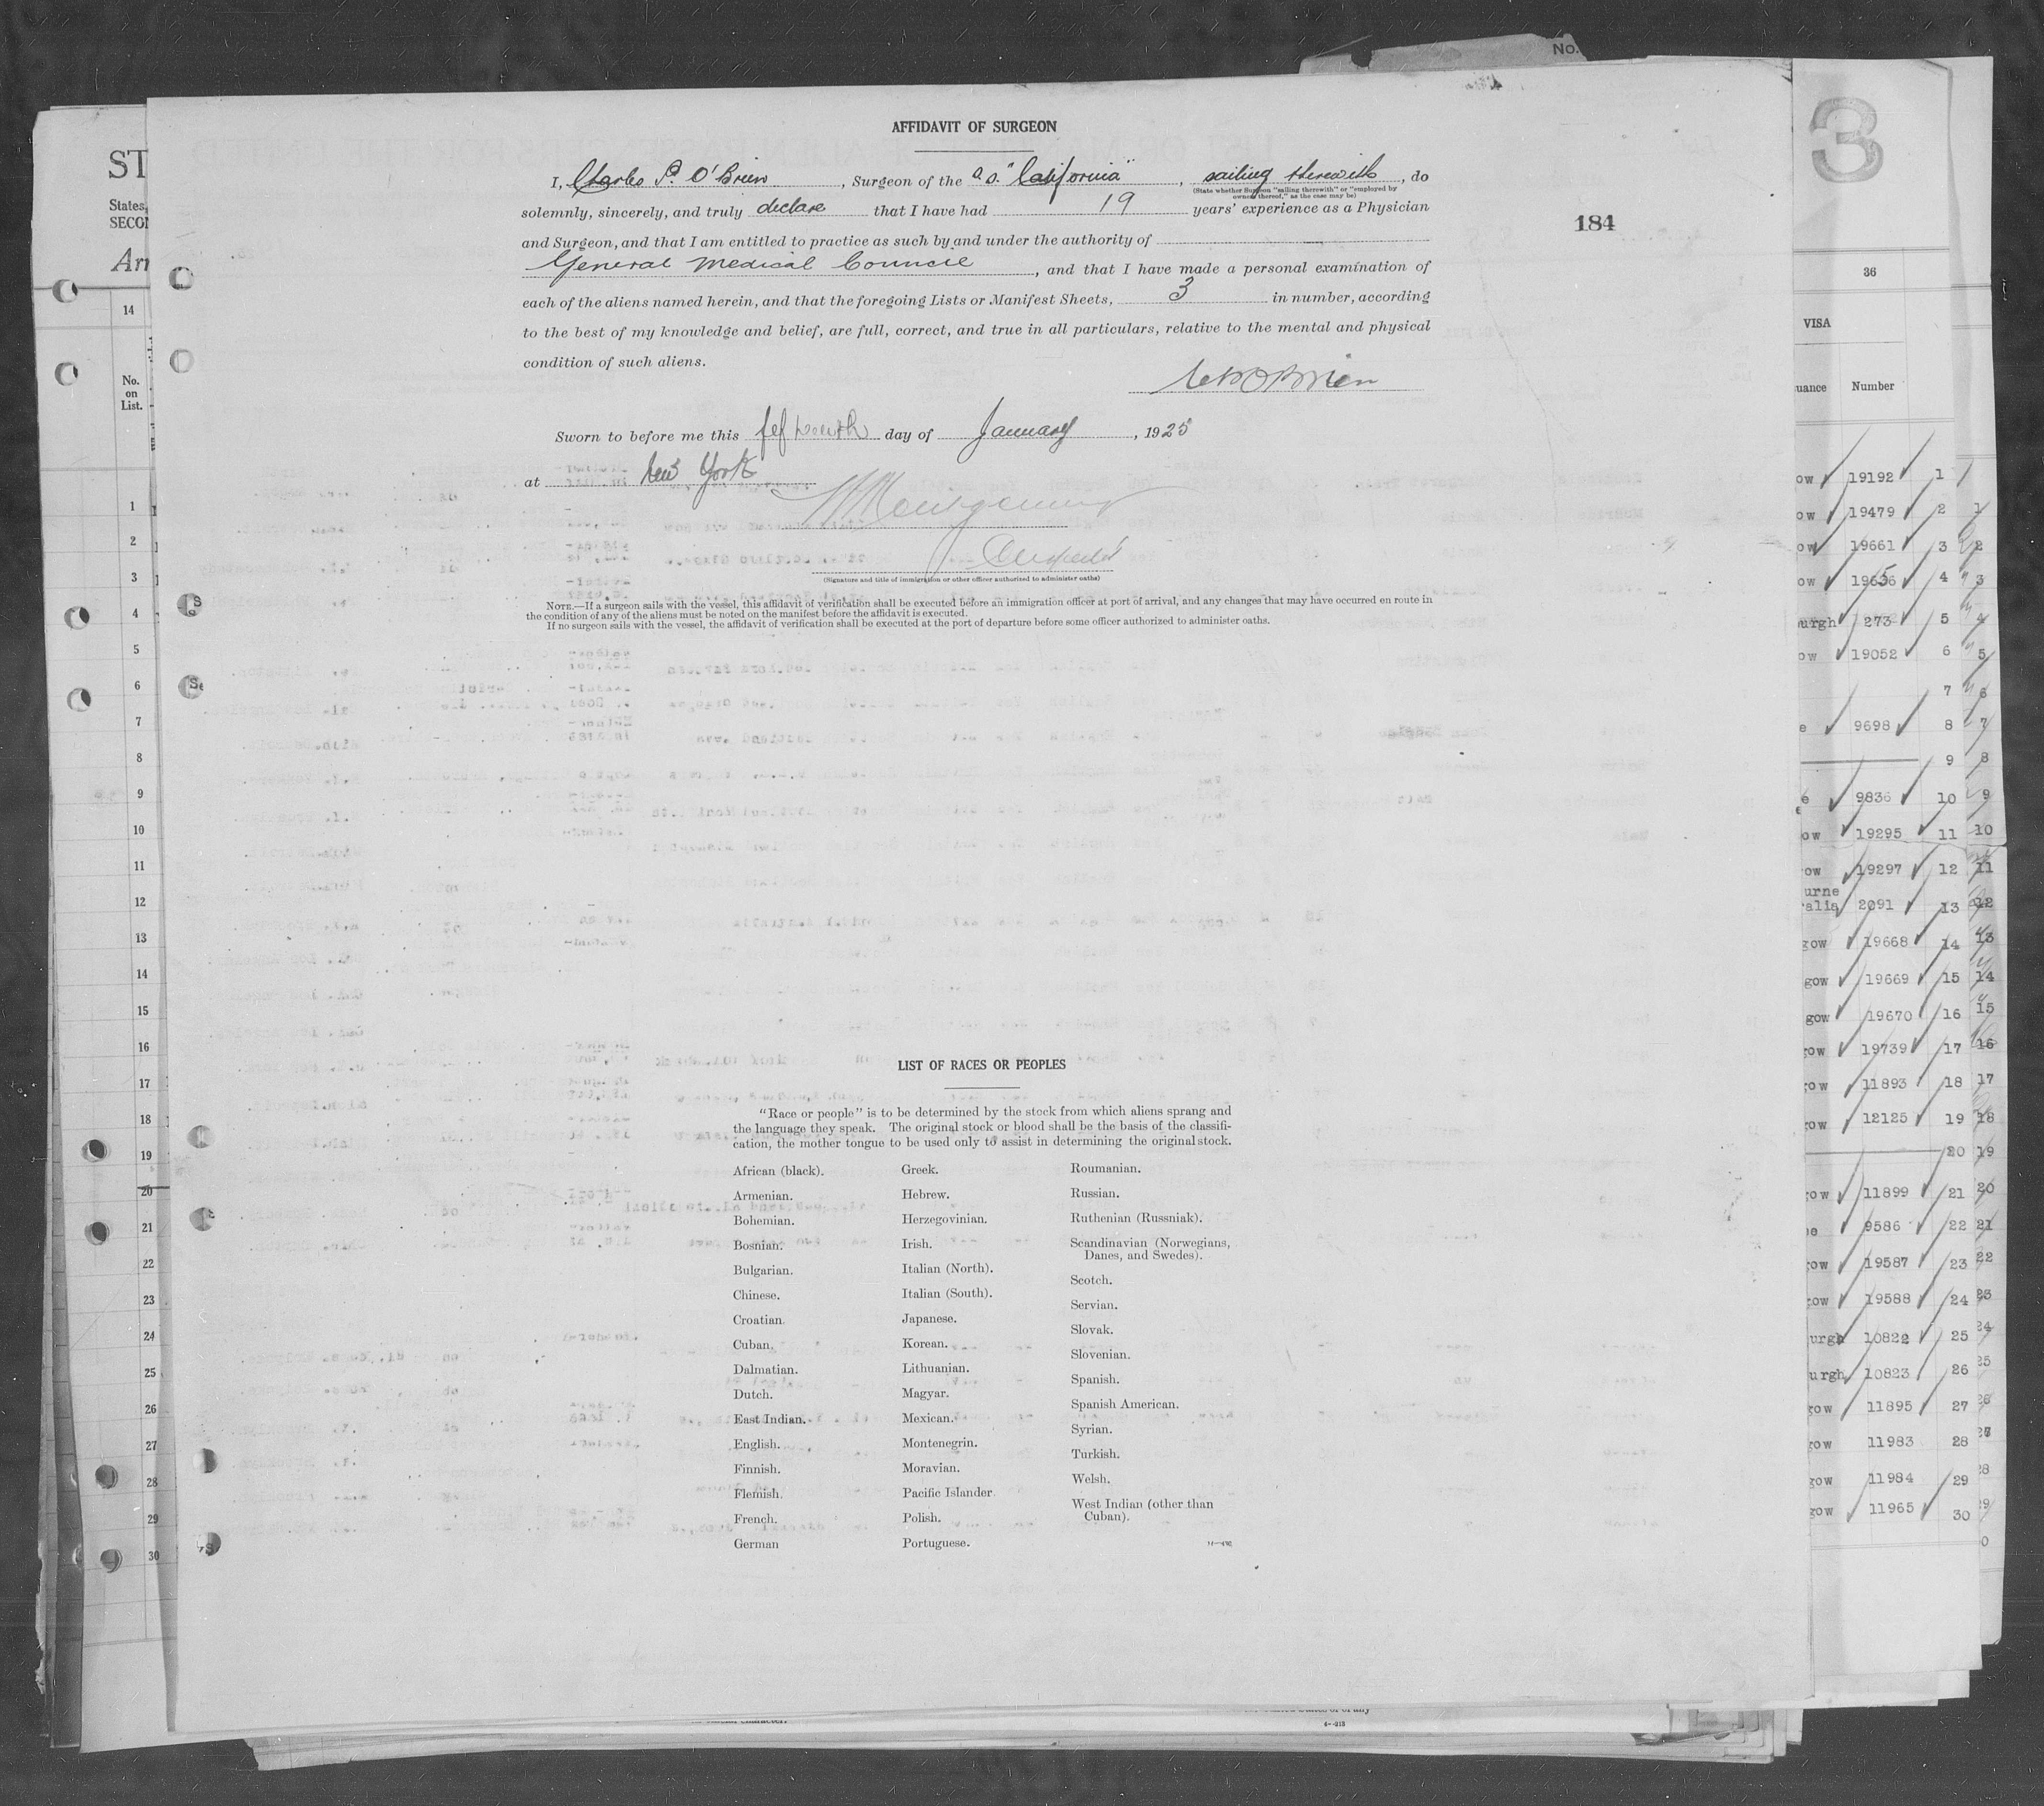 No.
3
ST
States,
SECON
Arr
AFFIDAVIT OF SURGEON
I, Charles P. O'Brien, Surgeon of the s.s. "California", sailing therewith, do
(State whether Surgeon "sailing therewith" or "employed by
owners thereof," as the case may be)
solemnly, sincerely, and truly declare that I have had 19 years' experience as a Physician
184
and Surgeon, and that I am entitled to practice as such by and under the authority of
General Medical Council, and that I have made a personal examination of
each of the aliens named herein, and that the foregoing Lists or Manifest Sheets, 3 in number, according
to the best of my knowledge and belief, are full, correct, and true in all particulars, relative to the mental and physical
condition of such aliens.
O'Brien
Sworn to before me this day of January, 1925
at New York
Montgomery
(Signature and title of immigration or other officer authorized to administer oaths)
NOTE.—If a surgeon sails with the vessel, this affidavit of verification shall be executed before an immigration officer at port of arrival, and any changes that may have occurred en route in
the condition of any of the aliens must be noted on the manifest before the affidavit is executed.
If no surgeon sails with the vessel, the affidavit of verification shall be executed at the port of departure before some officer authorized to administer oaths.
LIST OF RACES OR PEOPLES
"Race or people" is to be determined by the stock from which aliens sprang and
the language they speak. The original stock or blood shall be the basis of the classifi-
cation, the mother tongue to be used only to assist in determining the original stock.
African (black).
Armenian.
Bohemian.
Bosnian.
Bulgarian.
Chinese.
Croatian.
Cuban.
Dalmatian.
Dutch.
East Indian.
English.
Finnish.
Flemish.
French.
German
Greek.
Hebrew.
Herzegovinian.
Irish.
Italian (North).
Italian (South).
Japanese.
Korean.
Lithuanian.
Magyar.
Mexican.
Montenegrin.
Moravian.
Pacific Islander.
Polish.
Portuguese.
Roumanian.
Russian.
Ruthenian (Russniak).
Scandinavian (Norwegians,
Danes, and Swedes).
Scotch.
Servian.
Slovak.
Slovenian.
Spanish.
Spanish American.
Syrian.
Turkish.
Welsh.
West Indian (other than
Cuban).
14
No.
on
List.
1
2
3
4
5
6
7
8
9
10
11
12
13
14
15
16
17
18
19
20
21
22
23
24
25
26
27
28
29
30
36
VISA
uance Number
ow 19192 1
ow 19479 2
ow 19661 3
ow 4
urgh 273 5
ow 19052 6
7
e 9698 8
9
e 9836 10
ow 19295 11
ow 19297 12
urne
alia 2091 13
gow 19668 14
gow 19669 15
gow 19670 16
gow 19739 17
gow 11893 18
gow 12125 19
20
gow 11899 21
e 9586 22
gow 19587 23
gow 19588 24
urgh 10822 25
urgh 10823 26
gow 11895 27
gow 11983 28
gow 11984 29
gow 11965 30